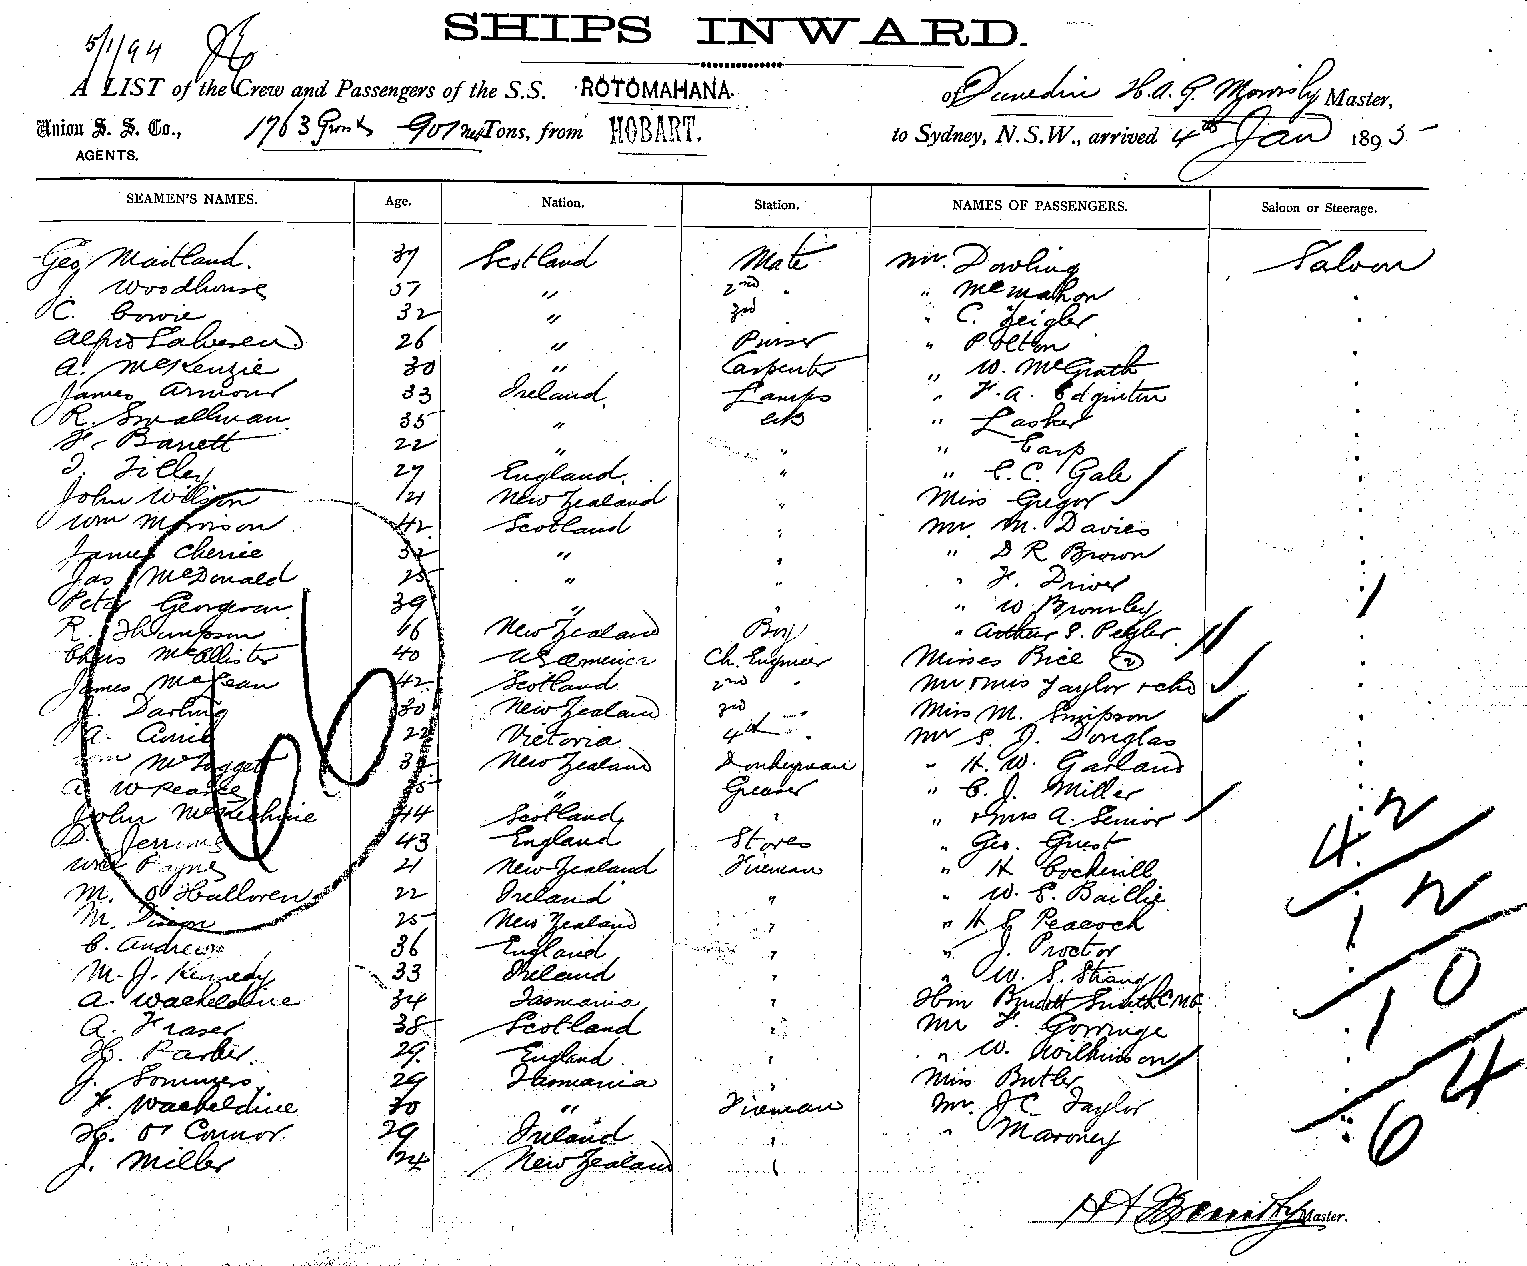 SHIPS INWARD.
5/1/94
A LIST of the Crew and Passengers of the S.S. ROTOMAHANA. of Dunedin H. A. G. Master,
Union S. S. Co., 1763 Gross 907 Net Tons, from HOBART. to Sydney, N.S.W., arrived 4th Jan 1895
AGENTS.
SEAMEN'S NAMES. Age. Nation. Station. NAMES OF PASSENGERS. Saloon or Steerage.
Geo Maitland. 37 Scotland Mate Mr. Dowling Saloon
J. Woodhouse 57 " 2nd " " McMahon
C. Cowie 32 " 3rd " C. Zeigler
Alfred Salvesen 26 " Purser " Polton
A. McKenzie 30 " Carpenter " W. McGrath
James Armour 33 Ireland Lamps " F. A. Edginton
R. Smallman 35 " AB " Lasker
F. Barrett 22 " " " Earp
J. Tilley 27 England. " " E. C. Gale
John Wilson 21 New Zealand " Miss Gregor
Wm Morrison 42 Scotland " Mr. M. Davies
James Cherrie 32 " " " D R Brown
Jas McDonald 25 " " " F. Driver
Peter Georgeson 39 " " W Bromley
R. Thompson 16 New Zealand Boy " Arthur S. Pegler
Chas McAllister 40 US America Ch. Engineer Misses Rice (2)
James McLean 42 Scotland 2nd " Mr & Mrs Taylor & chd
Darling 30 New Zealand 3rd " Miss M. Simpson
A. Currie 22 Victoria 4th " Mr S. J. Douglas
New Zealand Donkeyman " H. W. Garland
W Pearce " Greaser " C. J. Miller
John McKechnie 44 Scotland " " & Mrs A. Senior
D. Jenning 43 England Stores " Geo. Guest
Wm Payne 21 New Zealand Fireman " H Cockerill
M. O'Halloren 22 Ireland " " W. E. Baillie
M. 25 New Zealand " " H S Peacock
C. Andrew 36 England " " J. Proctor
M. J. Kennedy 33 Ireland " " W. S. Strang
A. Wacheldine 34 Tasmania " Hon Burdett Smith C.M.G.
A. Fraser 38 Scotland " Mr F. Gorringe
H. Parker. 29. England " " W. Wilkinson
J. Sommers, 29 Tasmania " Miss Butler
F. Wacheldine 30 " Fireman Mr. J C Taylor
H. O'Connor 29 Ireland " " Maroney
J. Miller 24 New Zealand "
66
42
12
10
64
Master.